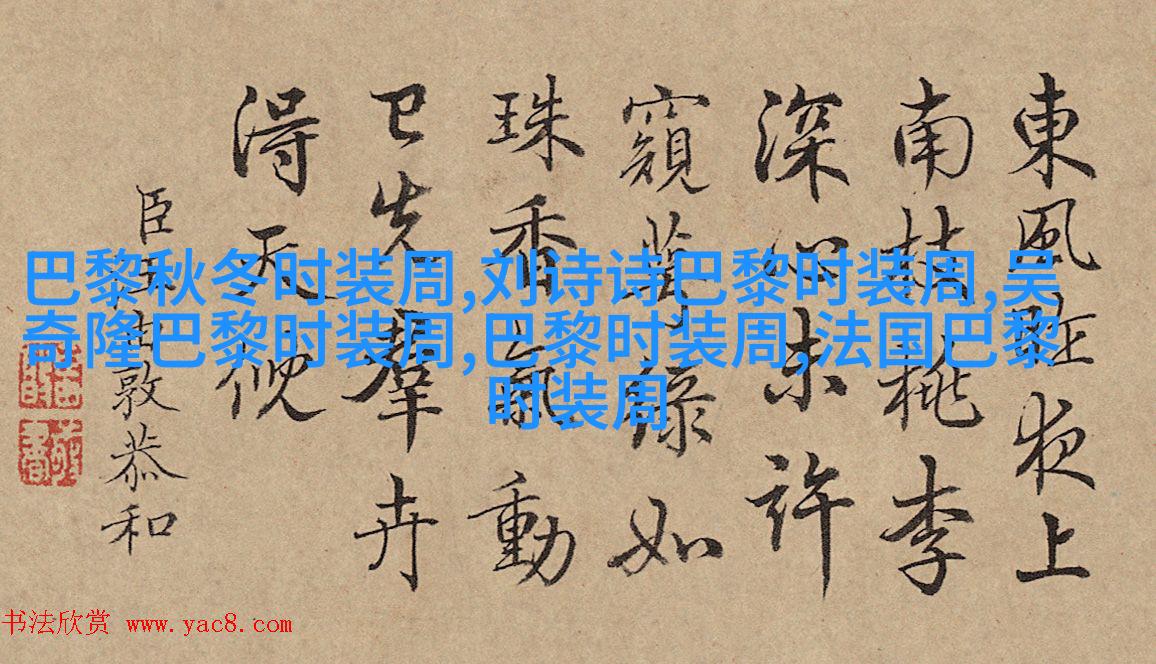 東風昨夜上
南枝桃李
深心未許
窺萼綠如
珠香氣動
已先羣卉
得天倪
臣汪由敦恭和
巴黎秋冬时装周,刘诗诗巴黎时装周,吴
奇隆巴黎时装周,巴黎时装周,法国巴黎
时装周
书法欣赏 www.yac8.com